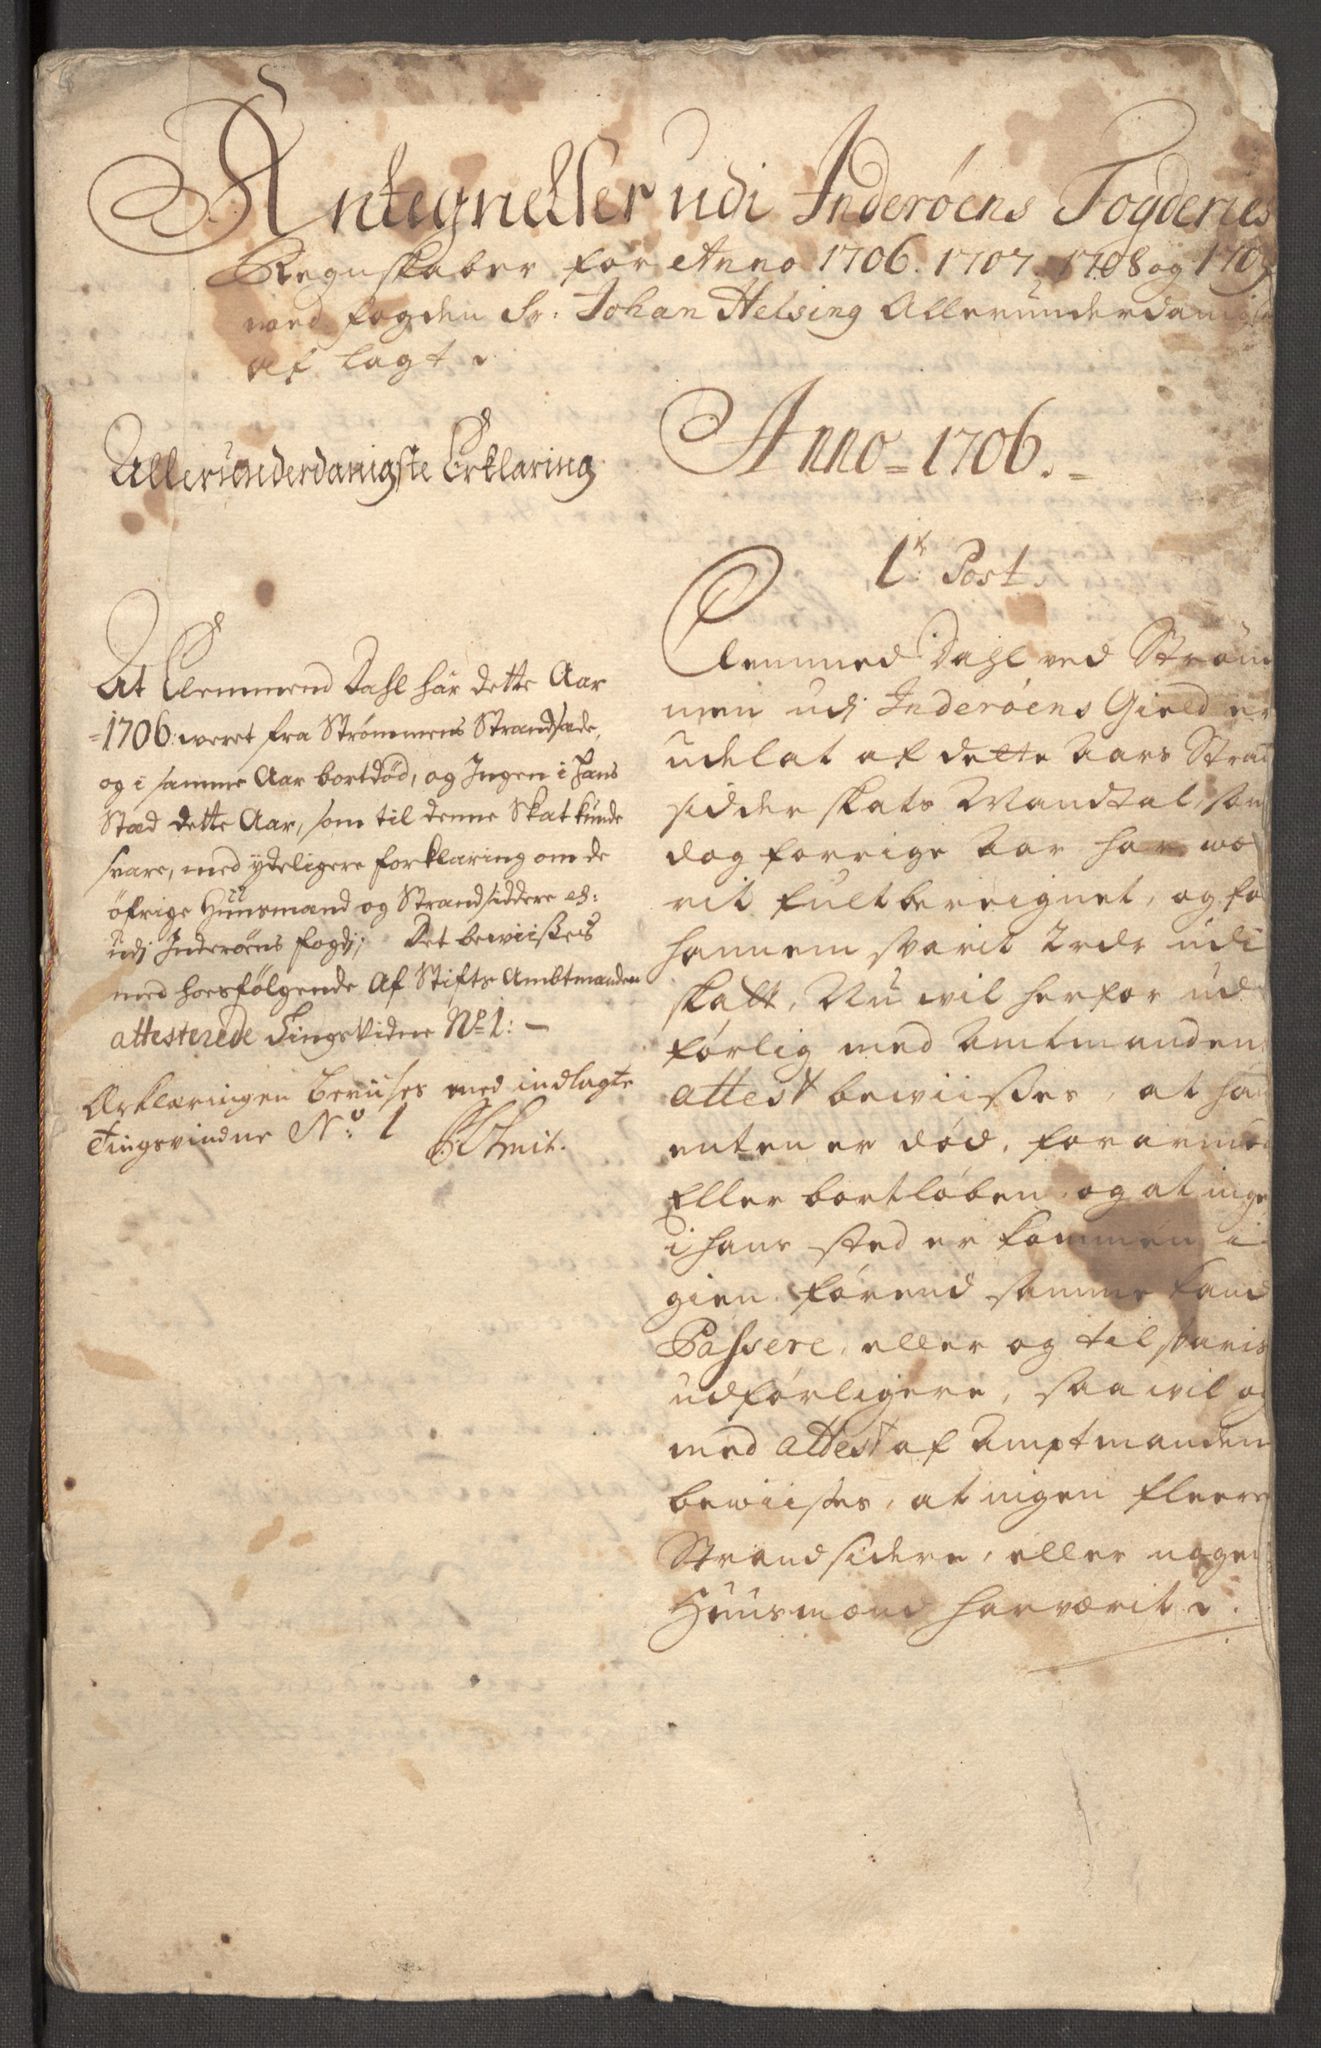 Antegnelser udi Inderøens Fogderies
Regnskaber for Anno 1706. 1707. 1708 og 1709
med fogden Sr: Johan Helsing Allerunderdanigst
af lagt.
Allerunderdanigste Erklaring
At Clemmend Dahl har dette Aar
1706: weret fra Strømmens Strandsæde,
og i samme Aar bortdød, og Ingen i hans
Stæd dette Aar, som til denne Skat kunde
svare, med ydeligere forklaring om de
øfrige Huusmænd og Strandsiddere
udj Inderøens fogdj; Det bewiißes
med hoesfølgende Af Stifts Ambtmanden
attesterede TingsVidne No 1: —
Ærklæringen beviises med indlagte
Tingsvindne No: 1 Schmit.
Anno 1706.
1te Post.
Clemmed Dahl ved Strøm
men udj Inderøens Gield er
udelat af dette Aars Strad
sidder skats Mandtal, som
dog forrige Aar har wæ
rit fult bereignet, og for
hannem svarit 2 rdr udi
skatt, Nu wil herfor ud
førlig med Amtmandens
attest bewiißes, at han
enten er død, forarmet
Eller bortløben, og at ingen
i hans sted er kommen i
gien. førend samme kand
Passere, eller og tilsvaris
udførligere, saa wil og
med attest af Amptmanden
bewiißes, at ingen fleere
Strandsidere, eller nogen
Huusmænd har værit.